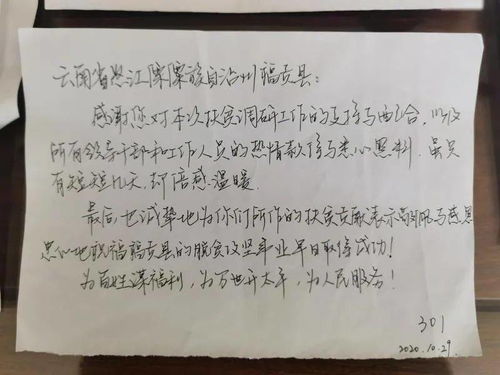 云南省怒江傈僳族自治州福贡县：
感谢您对本次扶贫调研工作的支持与配合，以及
所有领导干部和工作人员的热情款待与悉心照料。虽只
有短短几天，却倍感温暖。
最后也诚挚地为你们所作的扶贫贡献表示高度与感恩
忠心地祝福福贡县的脱贫攻坚事业早日取得成功！
为百姓谋福利，为万世开太平，为人民服务！
301
2020.10.29.